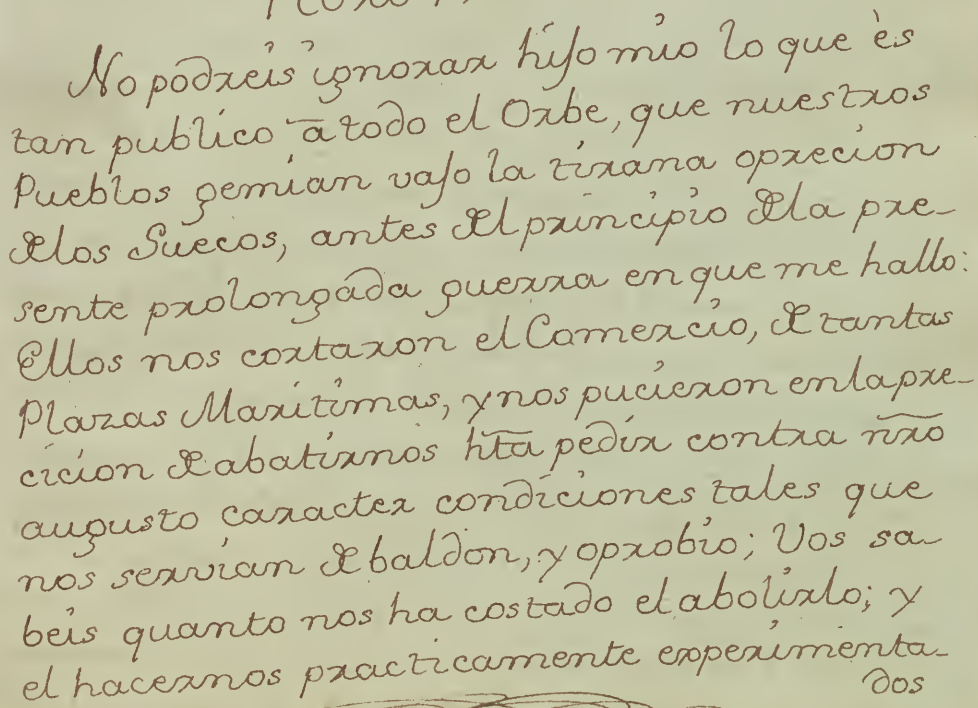 No podreis ignorar hijo mio lo que ès
tan publico à todo el Orbe, que nuestros
Pueblos gemian vajo la tirana oprecion
delos Suecos, antes del principio dela pre-
sente prolongada guerra en que me hallo:
Ellos nos cortaron el Comercio, de tantas
Plazas Maritimas, y nos pucieron enlapre-
cicion de abatirnos hta pedir contra nro
augusto caracter condiciones tales que
nos servian de baldon, y oprobio; Vos sa-
beis quanto nos ha costado el abolirlo; y
el hacernos practicamente experimenta-
dos